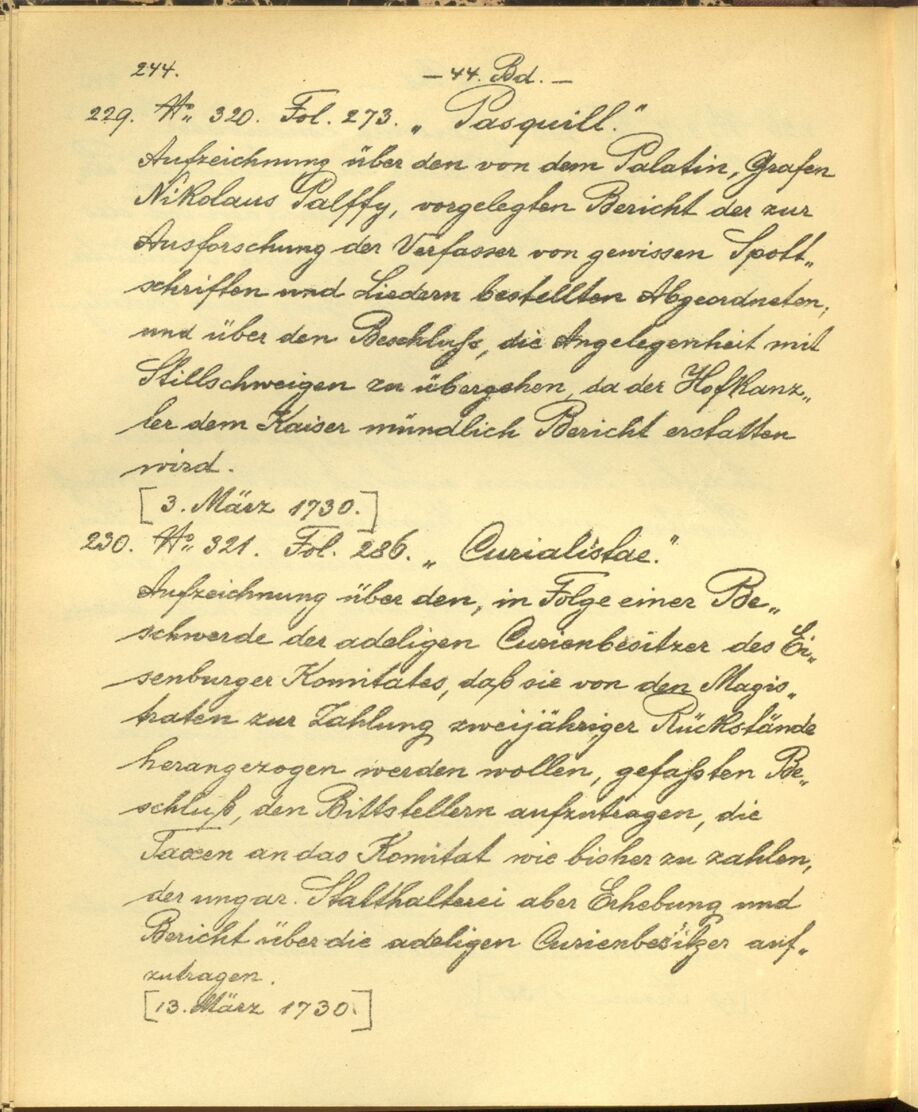 244.
— 44. Bd. —
229. No. 320. Fol. 273. „Pasquill.“
Aufzeichnung über den von dem Palatin, Grafen
Nikolaus Palffy, vorgelegten Bericht der zur
Ausforschung der Verfasser von gewissen Spott„
schriften und Liedern bestellten Abgeordneten,
und über den Beschluß, die Angelegenheit mit
Stillschweigen zu übergehen, da der Hofkanz„
ler dem Kaiser mündlich Bericht erstatten
wird.
[3. März 1730.]
230. No. 321. Fol. 286. „Curialistae.“
Aufzeichnung über den, in Folge einer Be„
schwerde der adeligen Curienbesitzer des Ei„
senburger Komitates, daß sie von den Magis„
traten zur Zahlung zweijähriger Rückstände
herangezogen werden wollen, gefaßten Be„
schluß, den Bittstellern aufzutragen, die
Taxen an das Komitat wie bisher zu zahlen,
der ungar. Statthalterei aber Erhebung und
Bericht über die adeligen Curienbesitzer auf„
zutragen.
[13. März 1730.]